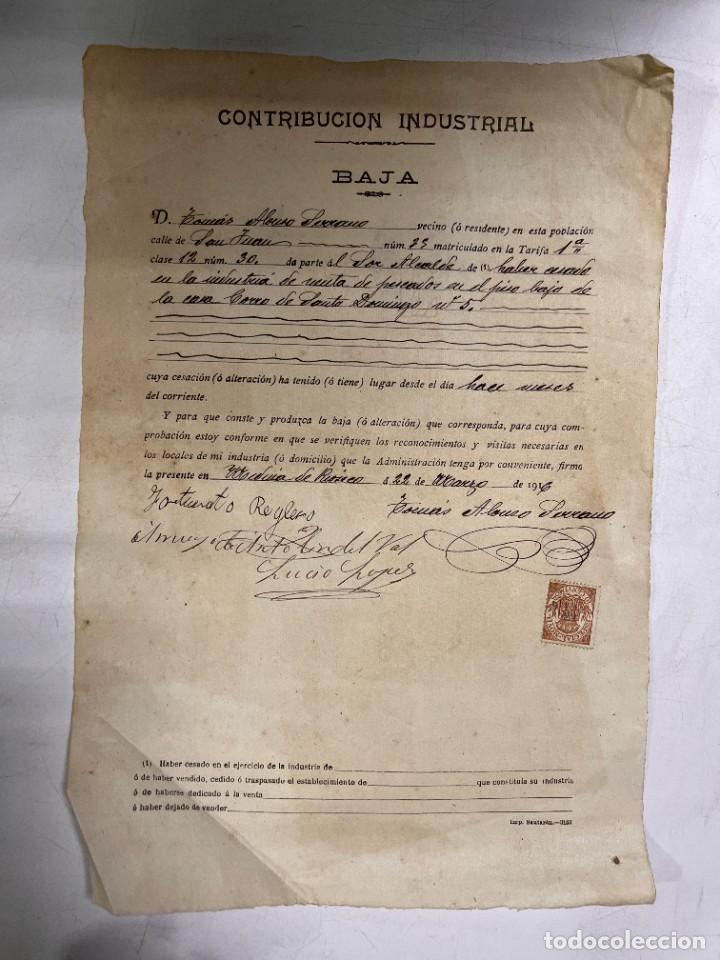 CONTRIBUCION INDUSTRIAL
BAJA
D. Tomás Alonso Serrano vecino (ó residente) en esta población
calle de San Juan núm. 33 matriculado en la Tarifa 1ª
clase 12 núm. 30. da parte al Sor Alcalde de (1) haber cesado
en la industria de venta de pescados en el piso bajo de
la casa Corro de Santo Domingo nº 5.
cuya cesación (ó alteración) ha tenido (ó tiene) lugar desde el día hace meses
del corriente.
Y para que conste y produzca la baja (ó alteración) que corresponda, para cuya com-
probación estoy conforme en que se verifiquen los reconocimientos y visitas necesarias en
los locales de mi industria (ó domicilio) que la Administración tenga por conveniente, firmo
la presente en Medina de Rioseco á 22 de Marzo de 1916
Fortunato Reglero Tomás Alonso Serrano
Antolin del Val
Lucio Lopez
(1) Haber cesado en el ejercicio de la industria de
ó de haber vendido, cedido ó traspasado el establecimiento de que constituía su industria
ó de haberse dedicado á la venta
ó haber dejado de vender
Imp.
todocoleccion.net